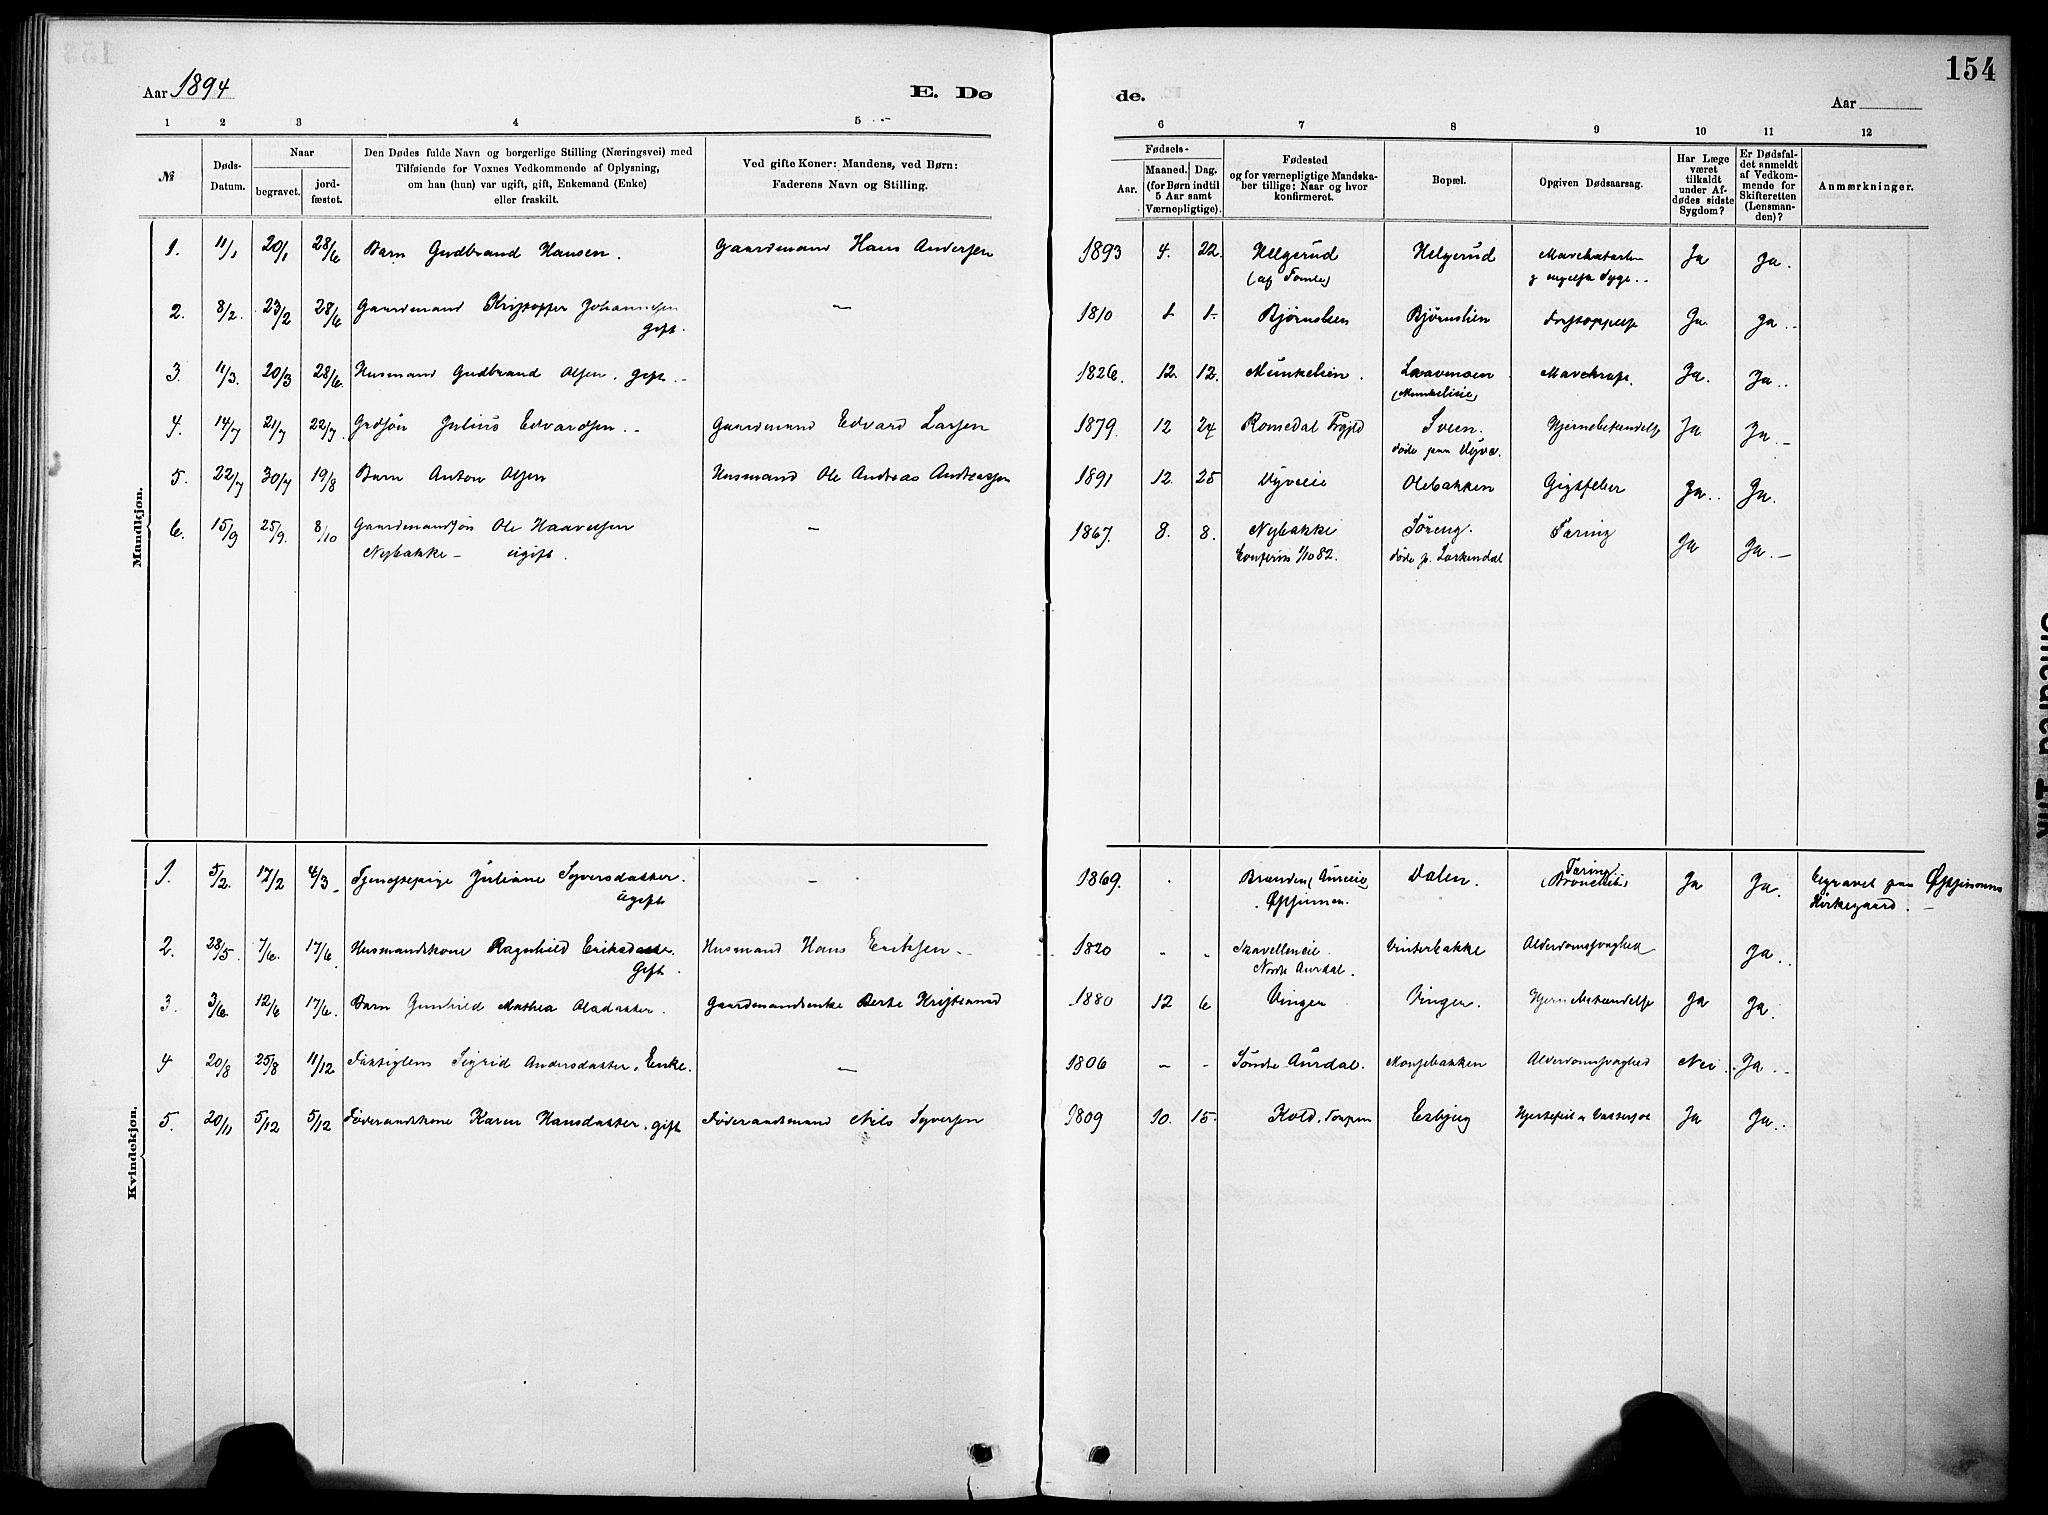 154
Aar 1894
E. Dø
de.
Aar
1 2 3 4 5 6 7 8 9 10 11 12
№
Døds-
Datum.
Naar
begravet.
jord-
fæstet.
Den Dødes fulde Navn og borgerlige Stilling (Næringsvei) med
Tilføiende for Voxnes Vedkommende af Oplysning,
om han (hun) var ugift, gift, Enkemand (Enke)
eller fraskilt.
Ved gifte Koner: Mandens, ved Børn:
Faderens Navn og Stilling.
Fødsels-
Aar.
Maaned. Dag.
(for Børn indtil
5 Aar samt
Værnepligtige).
Fødested
og for værnepligtige Mandska-
ber tillige: Naar og hvor
konfirmeret.
Bopæl.
Opgiven Dødsaarsag.
Har Læge
været
tilkaldt
under Af-
dødes sidste
Sygdom?
Er Dødsfal-
det anmeldt
af Vedkom-
mende for
Skifteretten
(Lensman-
den)?
Anmærkninger.
Mandkjøn.
1. 11/1 20/1 28/6 Barn Gudbrand Hansen. Gaardmand Hans Andersen 1893 4. 22. Helgerud Helgerud Mavekatarh Ja Ja.
(af Tomle) og engelsk Syge.
2. 8/2. 23/2 28/6 Gaardmand Kristoffer Johannesen — 1810 1 1. Bjørnlien Bjørnlien Forstoppelse Ja. Ja.
gift.
3. 11/3. 20/3 28/6. Husmand Gudbrand Olsen. gift. 1826. 12. 12. Munkelien. Laavemoen Mavekræft. Ja. Ja.
(Munkelieie)
4. 14/7 21/7 22/7. Grdsøn Julius Edvardsen. Gaardmand Edvard Larsen 1879. 12 24 Romedal Sveen. Hjernebetændelse Ja Ja.
døde paa
5. 22/7 30/7 19/8 Barn Anton Olsen Husmand Ole Andreas Andreassen 1891 12. 25 Olebakken Gigtfeber Ja. Ja.
6. 15/9 25/9. 8/10 Gaardmandsøn Ole Haavelsen — 1867. 8. 8. Nybakke Søreng. Tæring Ja Ja.
Nybakke — ugift. 1/10 82. døde p. Lorkendal
Kvindekjøn.
1. 5/2. 17/2 4/3 Tjenestepige Juliane Syversdatter. — 1869. Dalen. Tæring Ja Ja. begravet paa
ugift (Bronchit) Kirkegaard.
2. 28/5. 7/6. 17/6. Husmandskone Ragnhild Eriksdatter. Husmand Hans Eriksen 1820 Vinterbakke Alderdomssvaghed Ja.
Gift. Nordre Aurdal.
3. 3/6. 12/6 17/6. Barn Gunhild Mathea Olsdatter. Gaardmandsenke Berte 1880 12 6 Vingen Vingen. Hjernebetændelse Ja Ja.
4 20/8 25/8 11/12 Fattiglem Sigrid Andersdatter. Enke. — 1806 Søndre Aurdal. Alderdomssvaghed Nei Ja
5. 20/11 5/12 5/12 Føderaadskone Karen Hansdatter. gift Føderaadsmand Nils Syversen 1809 10. 15. Kold. Esbjug Ja Ja.